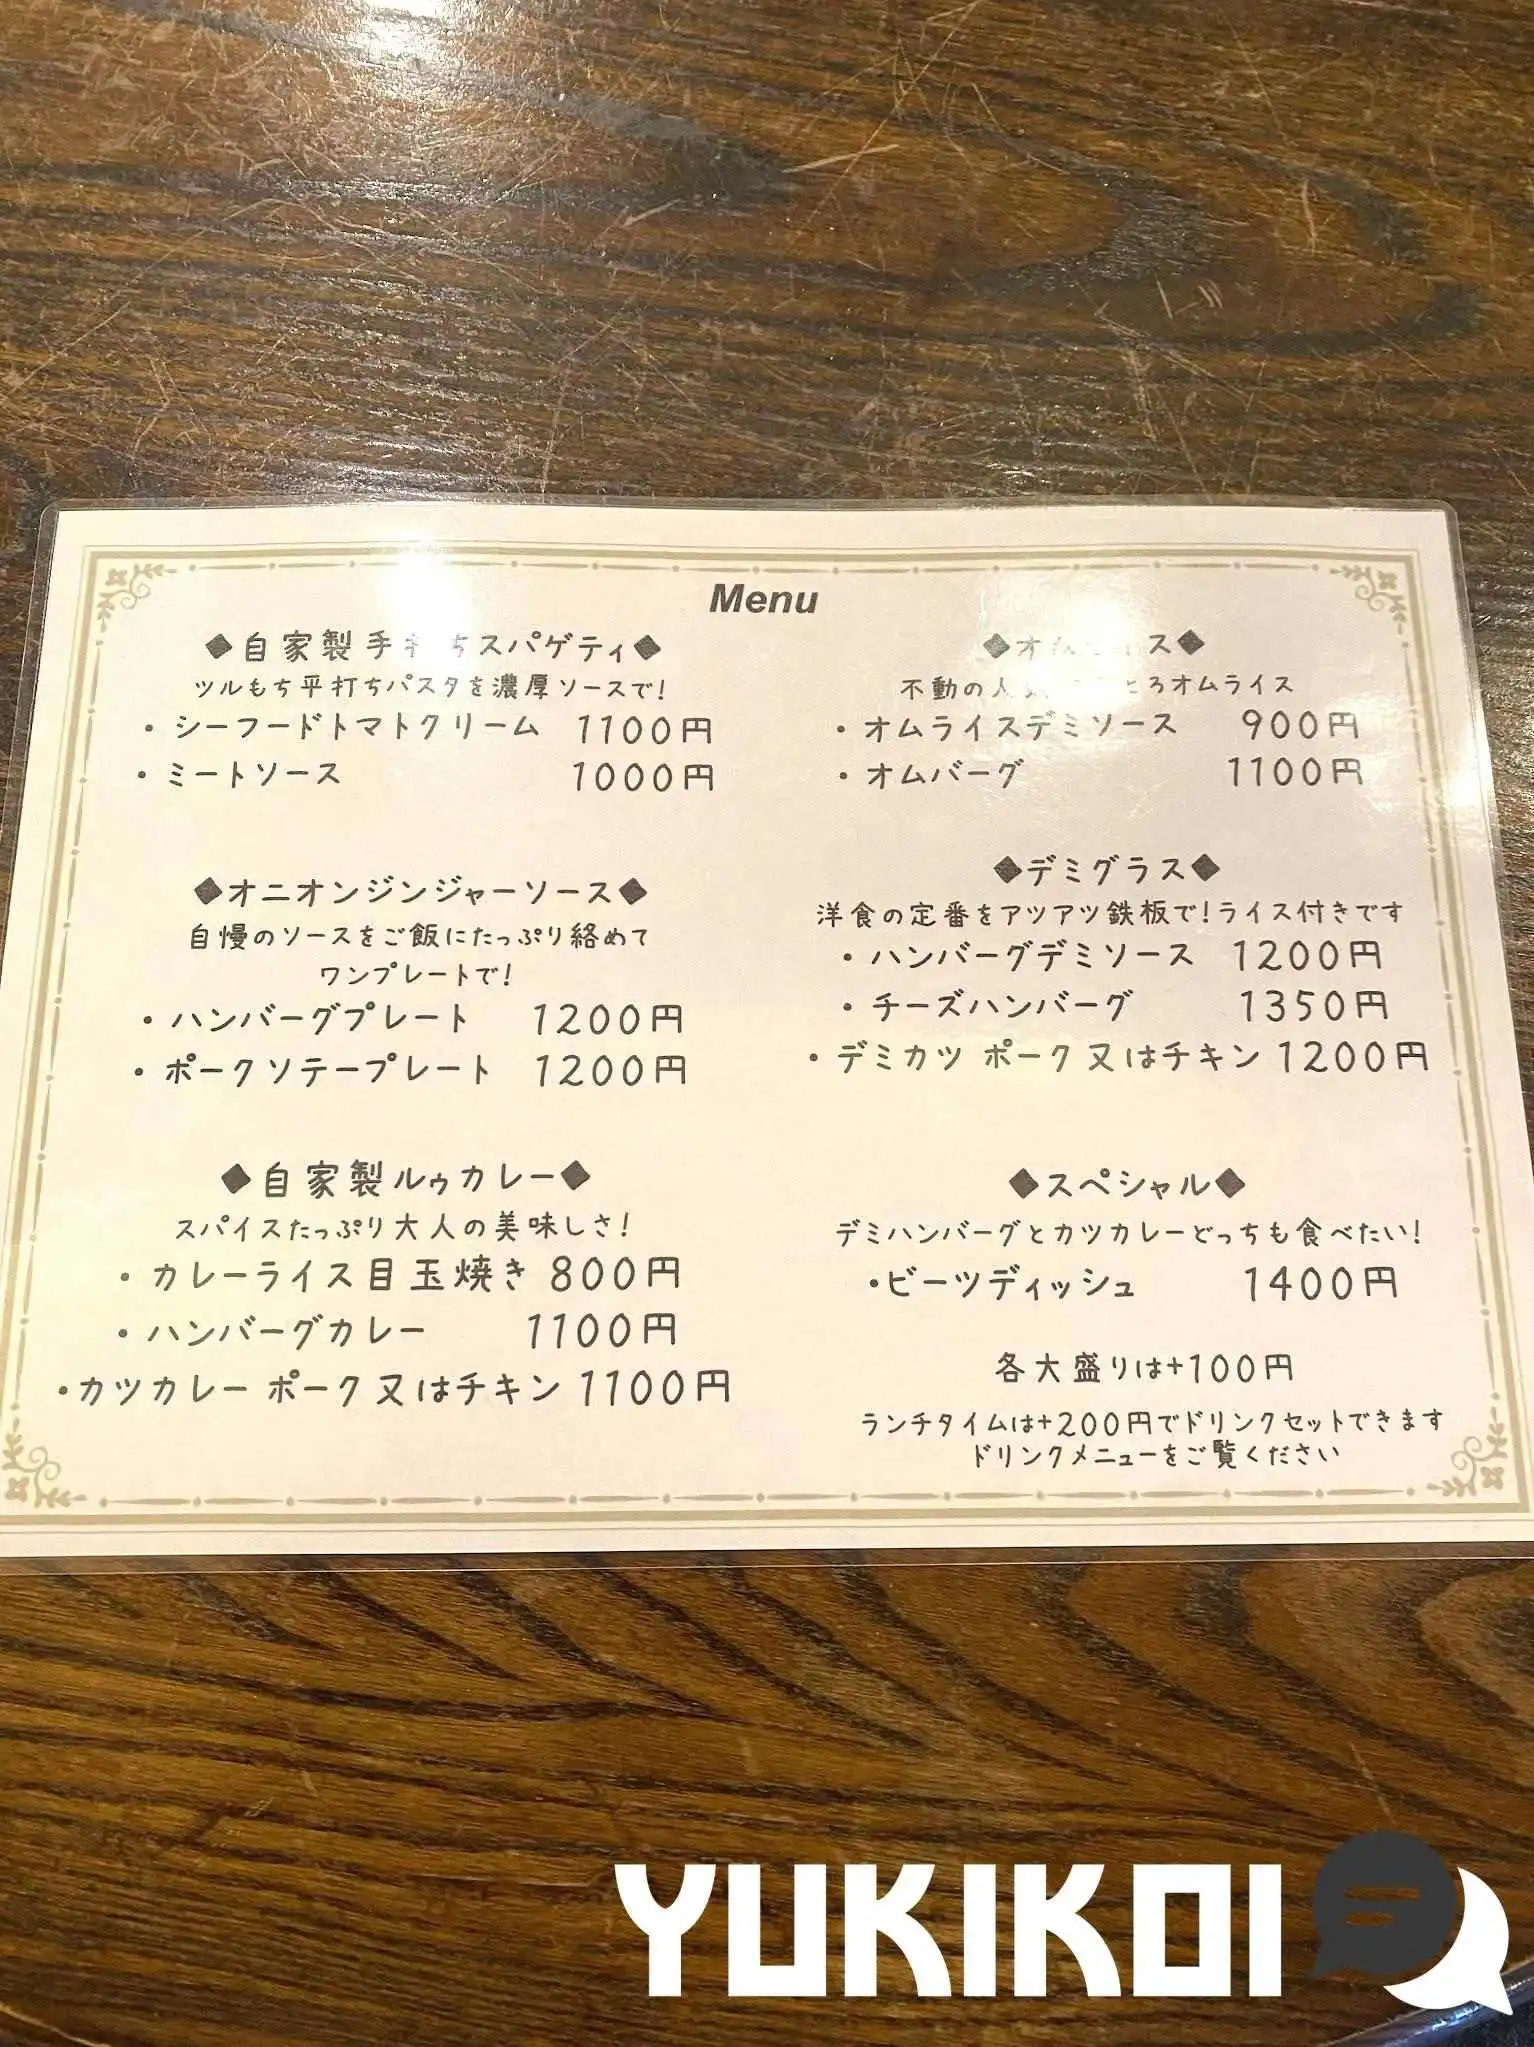 Menu
◆自家製手打ちスパゲティ◆
ツルもち平打ちパスタを濃厚ソースで!
・シーフードトマトクリーム 1100円
・ミートソース 1000円
◆オニオンジンジャーソース◆
自慢のソースをご飯にたっぷり絡めて
ワンプレートで!
・ハンバーグプレート 1200円
・ポークソテープレート 1200円
◆自家製ルゥカレー◆
スパイスたっぷり大人の美味しさ!
・カレーライス目玉焼き 800円
・ハンバーグカレー 1100円
・カツカレー ポーク又はチキン 1100円
◆オムライス◆
不動の人気 とろオムライス
・オムライスデミソース 900円
・オムバーグ 1100円
◆デミグラス◆
洋食の定番をアツアツ鉄板で!ライス付きです
・ハンバーグデミソース 1200円
・チーズハンバーグ 1350円
・デミカツ ポーク又はチキン 1200円
◆スペシャル◆
デミハンバーグとカツカレーどっちも食べたい!
・ビーツディッシュ 1400円
各大盛りは+100円
ランチタイムは+200円でドリンクセットできます
ドリンクメニューをご覧ください
YUKIKOI